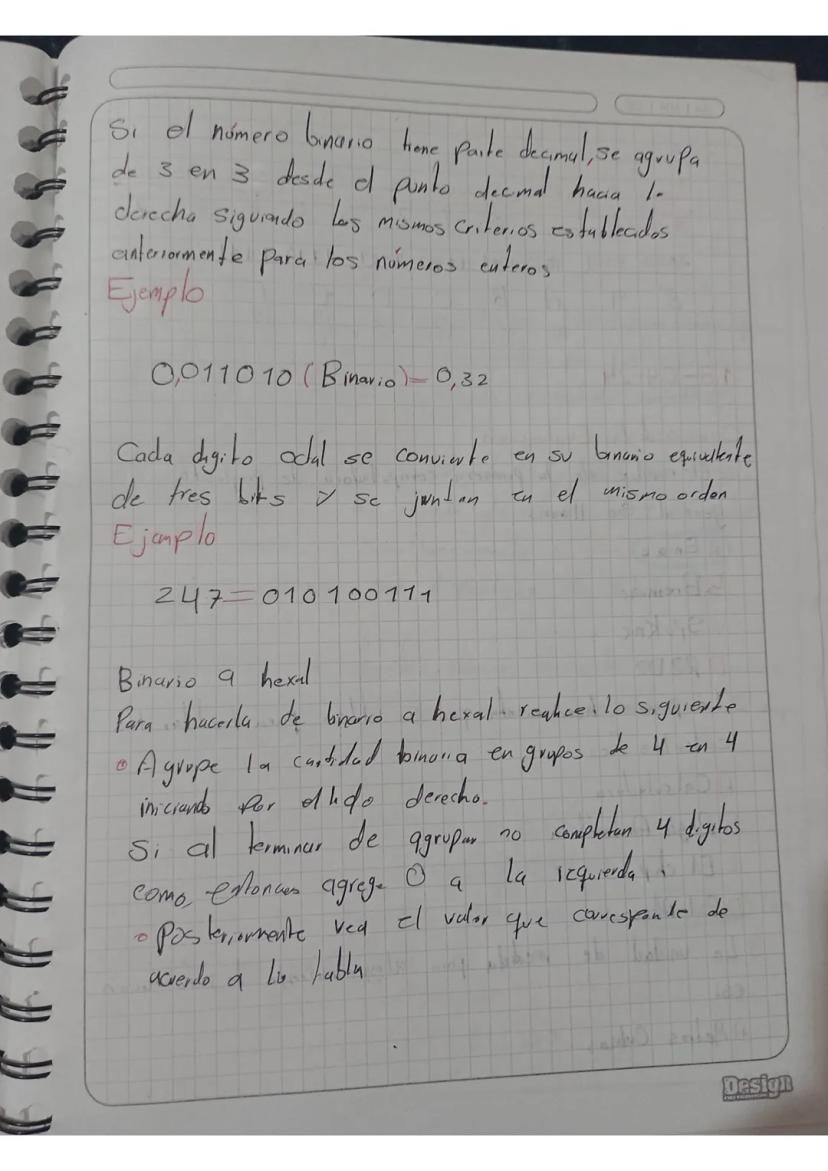 Si el número binario tiene parte decimal, se agrupa
de 3 en 3 desde el punto decimal hacia la
derecha siguiendo los mismos criterios establecidos
anteriormente para los números enteros
Ejemplo
0,011010 (Binario) = 0,32
Cada digito octal se convierte en su binario equivalente
de tres bits y se juntan en el mismo orden
Ejemplo
247 = 010100111
Binario a hexal
Para hacerla de binario a hexal realice lo siguiente
• Agrupe la cantidad binaria en grupos de 4 en 4
iniciando por el lado derecho.
Si al terminar de agrupar no completan 4 digitos
como, entonces agrege 0 a la izquierda.
• Posteriormente vea el valor que corresponde de
acuerdo a la tabla
Design